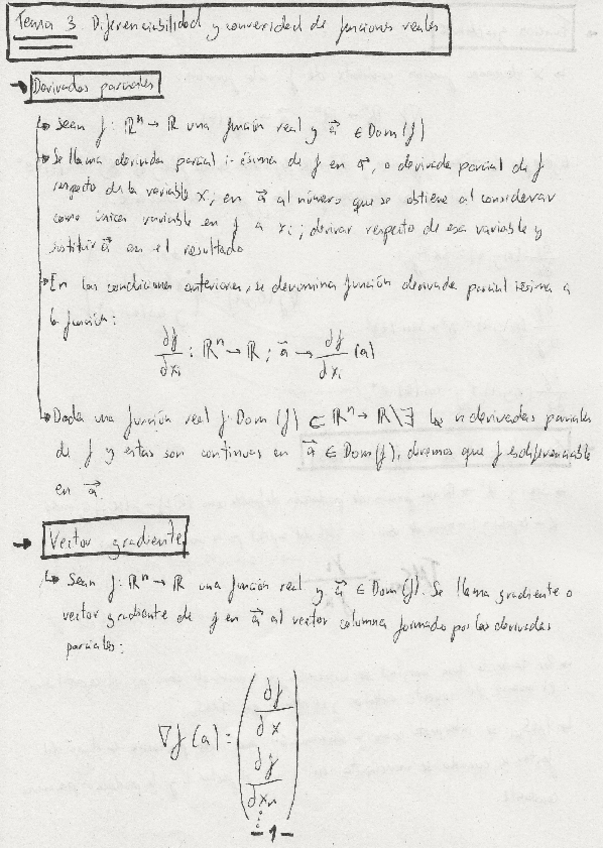 Tema 3 Diferenciabilidad y convexidad de funciones reales
→ Derivadas parciales
↳ Sean f: ℝⁿ → ℝ una función real y a⃗ ∈ Dom(f)
↳ Se llama derivada parcial i-ésima de f en a⃗, o derivada parcial de f
respecto de la variable xᵢ en a⃗ al número que se obtiene al considerar
como única variable en f a xᵢ; derivar respecto de esa variable y
sustituir a⃗ en el resultado
↳ En las condiciones anteriores, se denomina función derivada parcial iésima a
la función:
∂f/∂xᵢ : ℝⁿ → ℝ ; a⃗ → ∂f/∂xᵢ (a)
↳ Dada una función real f: Dom(f) ⊂ ℝⁿ → ℝ \ ∃ las n derivadas parciales
de f y estas son continuas en a⃗ ∈ Dom(f), diremos que f es diferenciable
en a⃗
→ Vector gradiente
↳ Sean f: ℝⁿ → ℝ una función real y a⃗ ∈ Dom(f). Se llama gradiente o
vector gradiente de f en a⃗ al vector columna formado por las derivadas
parciales:
∇f(a) = (∂f/∂x
∂f/∂xₙ
⋮)
-1-